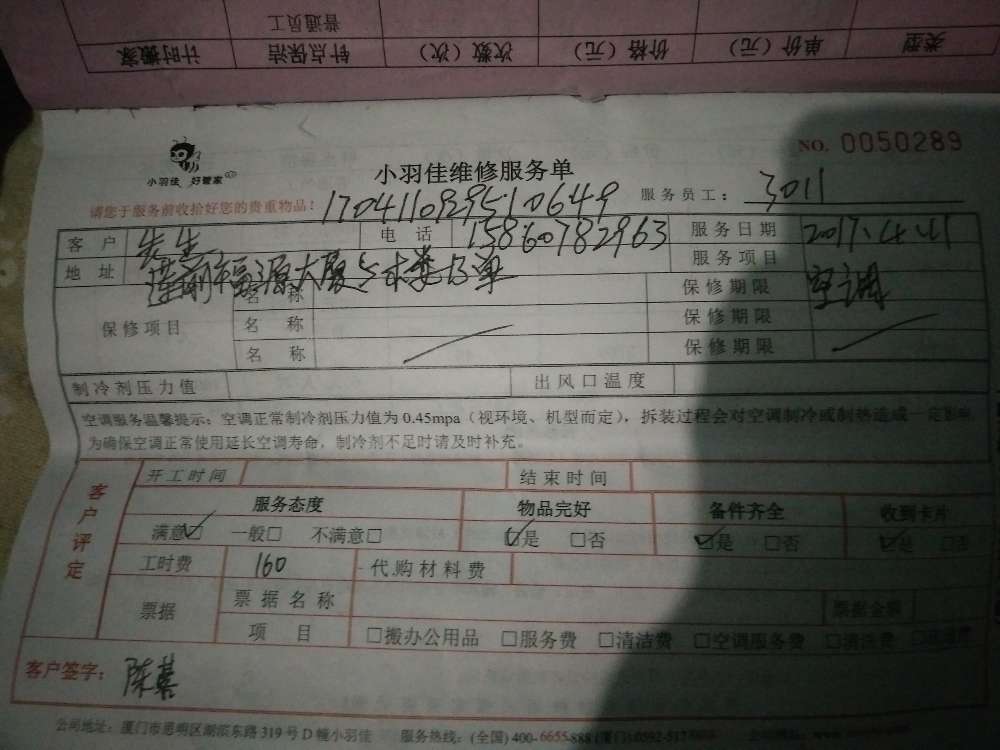 类型 单价（元） 价格（元） 次数（次） 钟点保洁 计时搬家
普通员工
NO. 0050289
小羽佳 好管家
小羽佳维修服务单
请您于服务前收拾好您的贵重物品： 1704110929510649 服务员工： 3011
客户 先生 电话 15860782963 服务日期 2017.4.11
地址 莲前福源大厦 服务项目 空调
保修项目 名称 保修期限
名称 保修期限
名称 保修期限
制冷剂压力值 出风口温度
空调服务温馨提示：空调正常制冷剂压力值为0.45mpa（视环境、机型而定），拆装过程会对空调制冷或制热造成一定影响
为确保空调正常使用延长空调寿命，制冷剂不足时请及时补充。
客户评定
开工时间 结束时间
服务态度 物品完好 备件齐全 收到卡片
满意☑ 一般□ 不满意□ ☑是 □否 ☑是 □否 ☑是 □否
工时费 160 代购材料费
票据 票据名称 票据金额
项目 □搬办公用品 □服务费 □清洁费 □空调服务费 □清洗费
客户签字： 陈
公司地址：厦门市思明区湖滨东路319号D幢小羽佳 服务热线：(全国) 400-6655-888 (厦门) 0592-